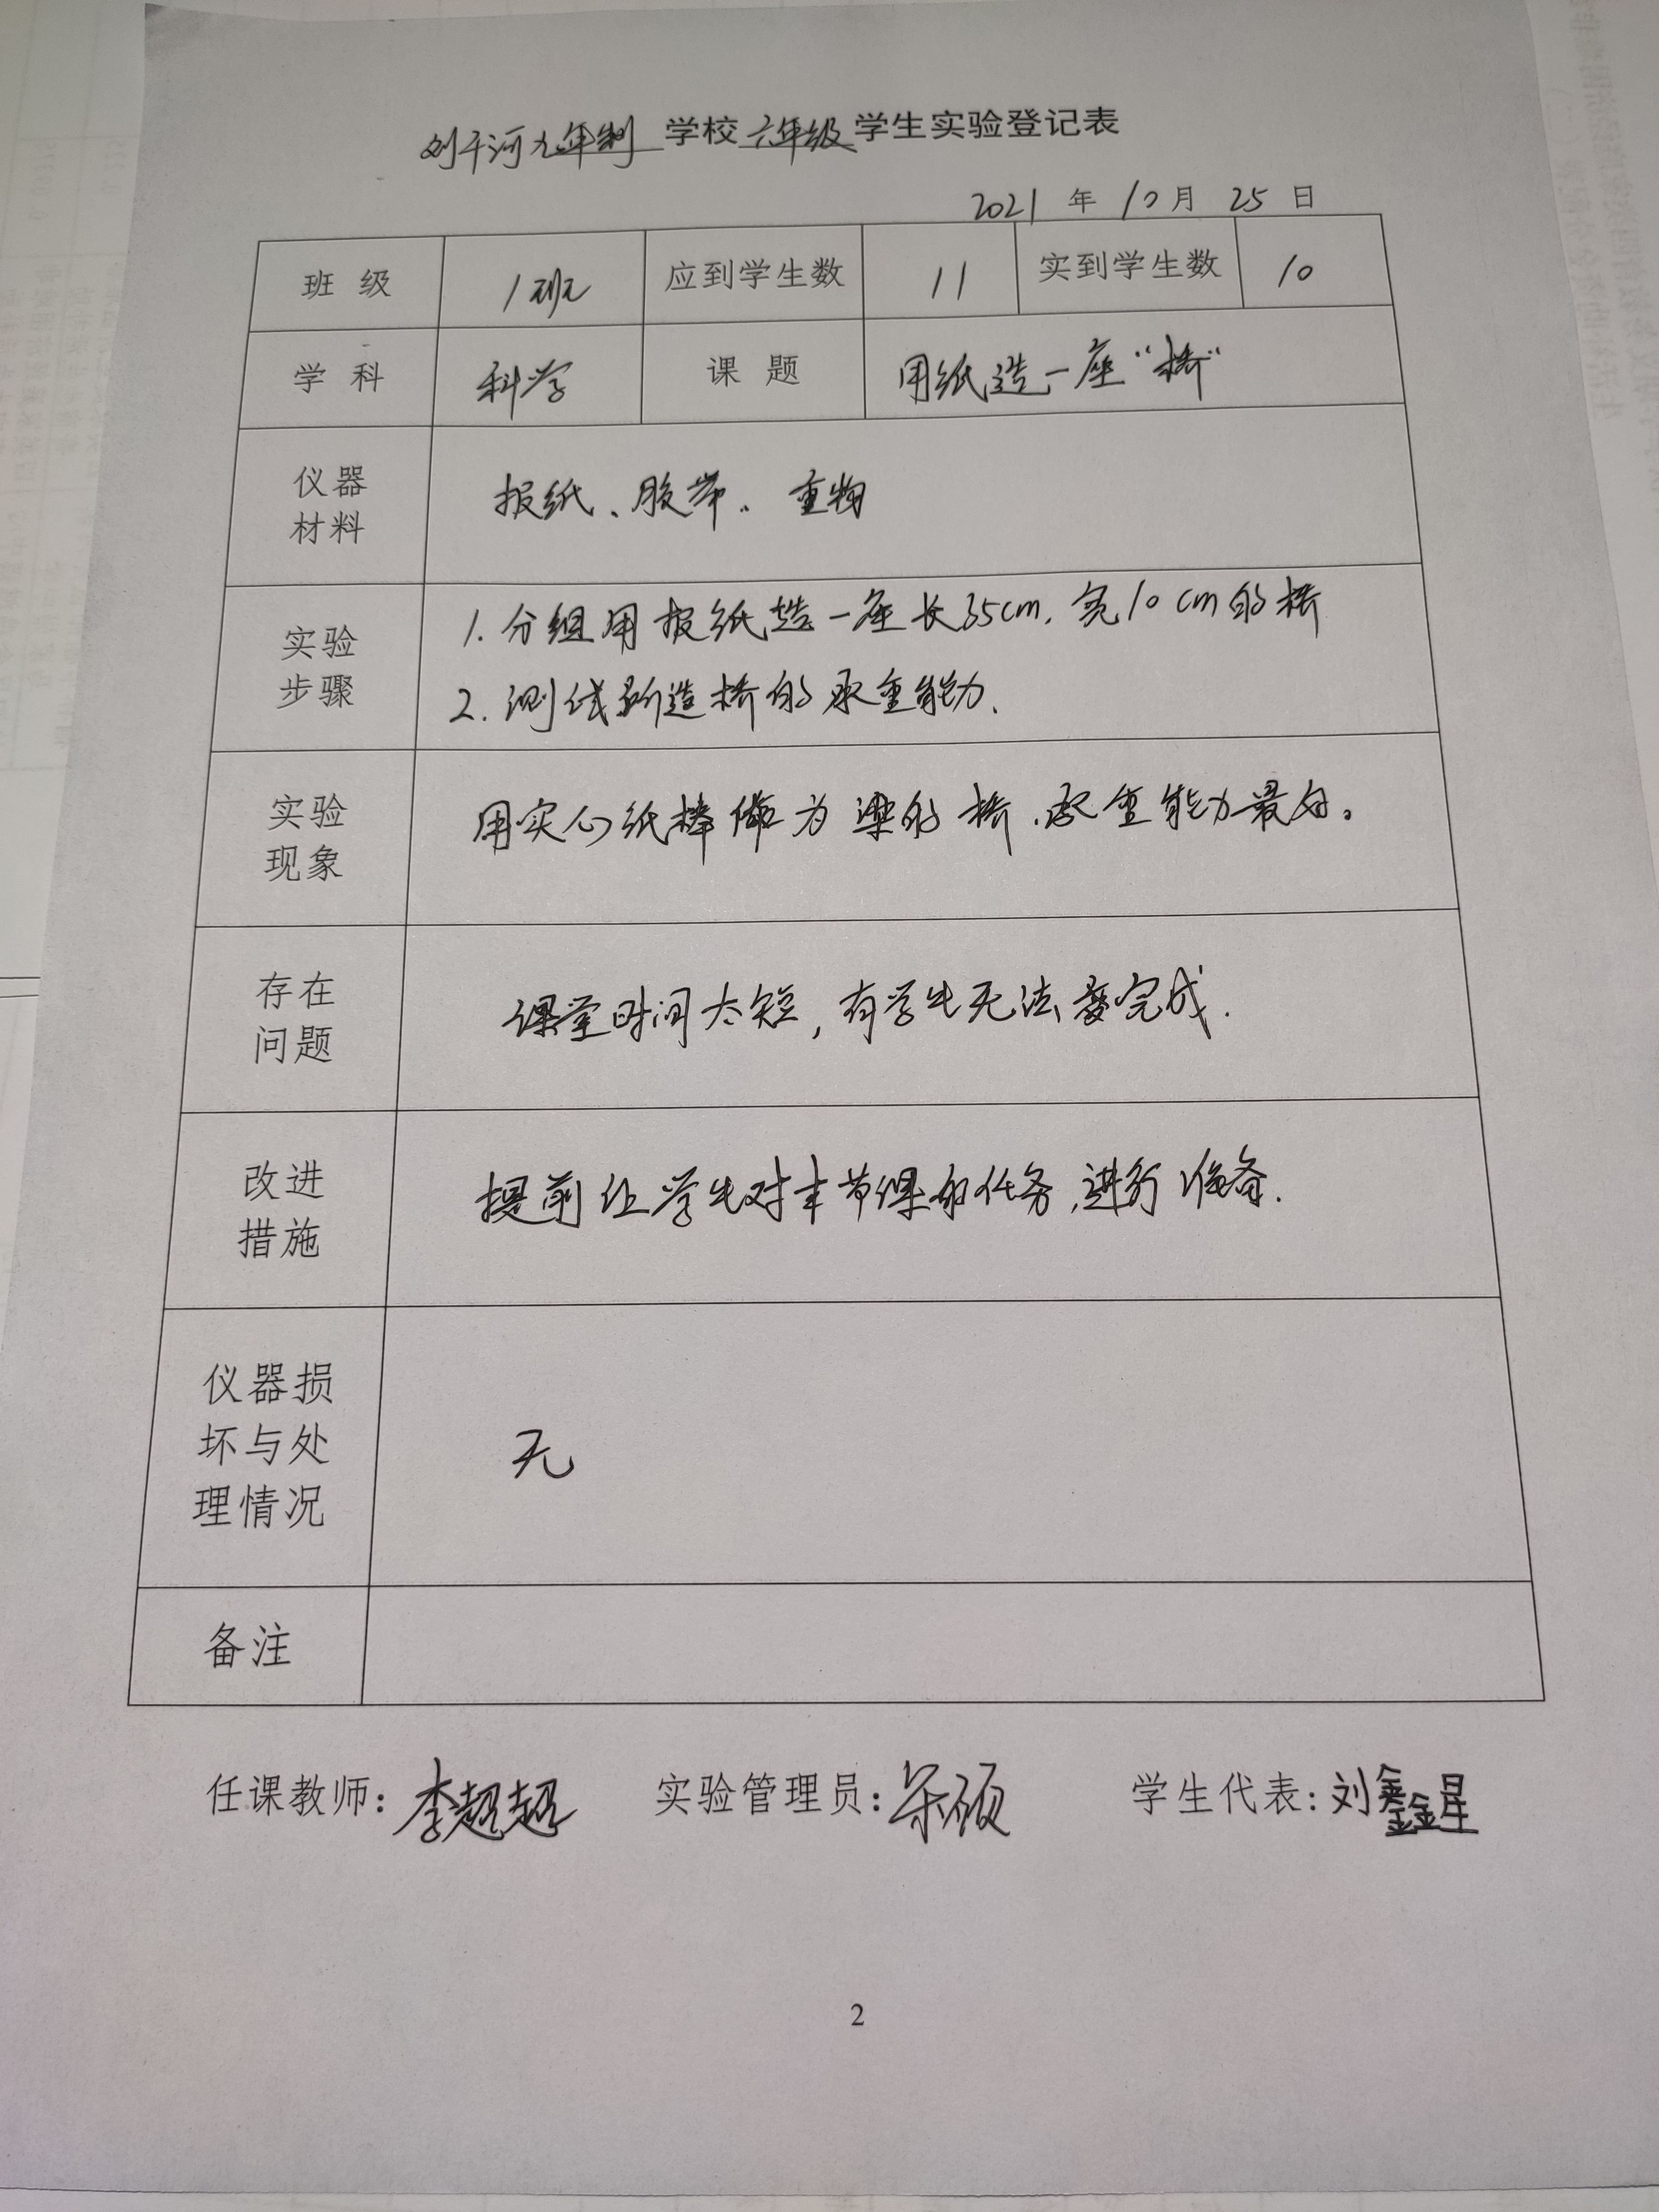 刘干河九年制学校六年级学生实验登记表
2021年10月25日
班 级 1班 应到学生数 11 实到学生数 10
学 科 科学 课 题 用纸造一座“桥”
仪器
材料
报纸、胶带、重物
实验
步骤
1. 分组用报纸造一座长35cm,宽10cm的桥
2. 测试所造桥的承重能力.
实验
现象
用实心纸棒做为梁的桥.承重能力最好。
存在
问题
课堂时间太短,有学生无法完成.
改进
措施
提前让学生对本节课的任务,进行准备.
仪器损
坏与处
理情况
无
备注
任课教师:李超超 实验管理员: 学生代表:刘鑫星
2